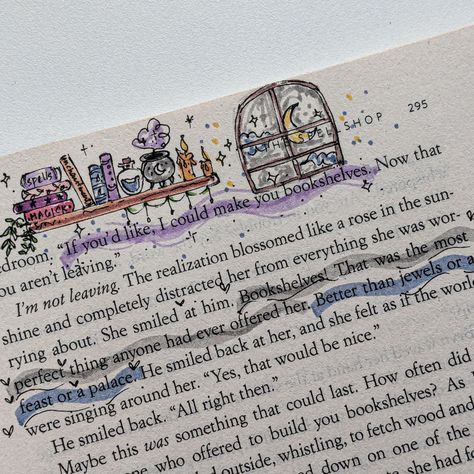 SHOP 295
SPELLS
MAGICK
droom. “If you’d like, I could make you bookshelves. Now that
ou aren’t leaving.”
I’m not leaving. The realization blossomed like a rose in the sun-
shine and completely distracted her from everything she was wor-
rying about. She smiled at him. Bookshelves! That was the most
perfect thing anyone had ever offered her. Better than jewels or a
feast or a palace. He smiled back at her, and she felt as if the world
were singing around her. “Yes, that would be nice.”
He smiled back. “All right then.”
Maybe this was something that could last. How often did
one who offered to build you bookshelves? As
outside, whistling, to fetch wood and
down on one of the
she had